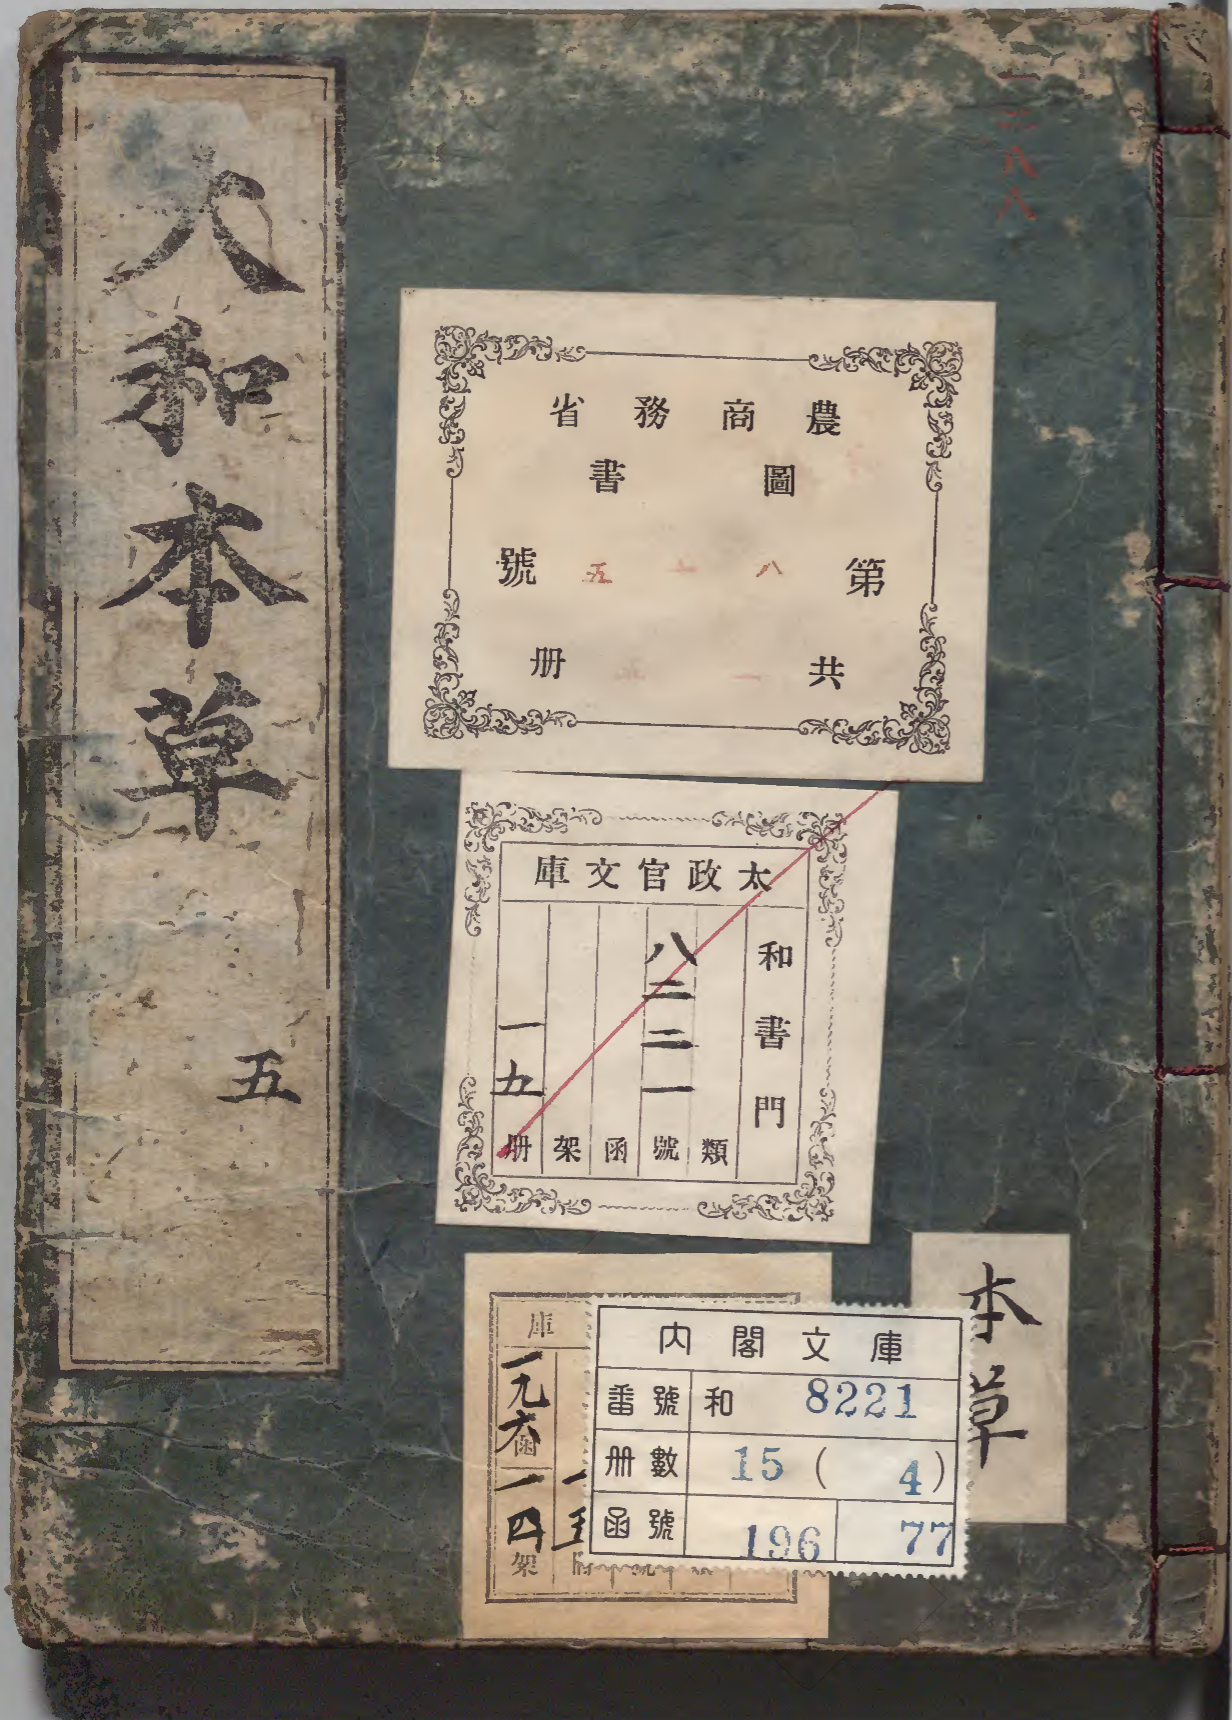 大和本草
五
一二八八
農商務省
圖書
第八十五號
共一五册
太政官文庫
和書門
類
八二二一號
函
架
一五册
本草
庫
一九六函
一四架
内閣文庫
番號 和 8221
册數 15 ( 4 )
函號 196 77